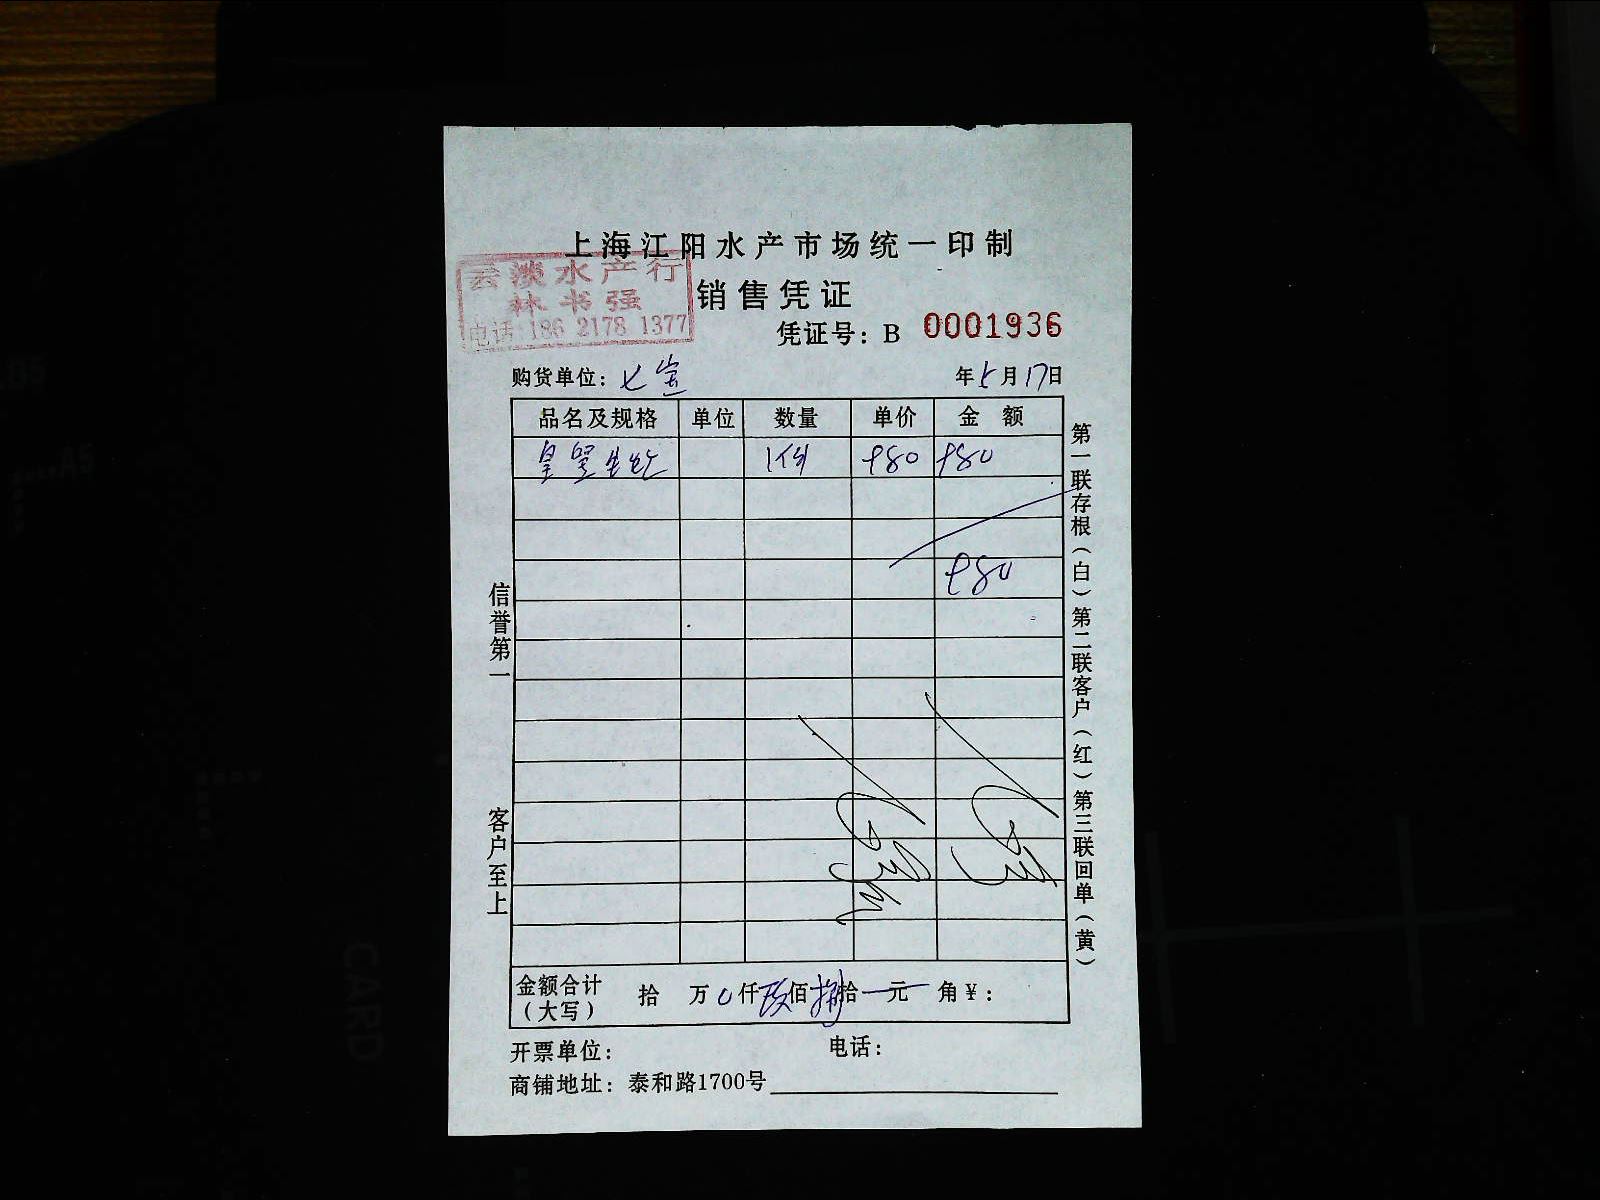 上海江阳水产市场统一印制
云淡水产行
林书强
电话:186 2178 1377
销售凭证
凭证号: B 0001936
购货单位: 七宝
年5月17日
品名及规格 单位 数量 单价 金额
1份 980 980
980
信誉第一
客户至上
第一联存根(白)第二联客户(红)第三联回单(黄)
金额合计(大写) 拾 万0仟玖佰捌拾 元 角¥:
开票单位: 电话:
商铺地址: 泰和路1700号